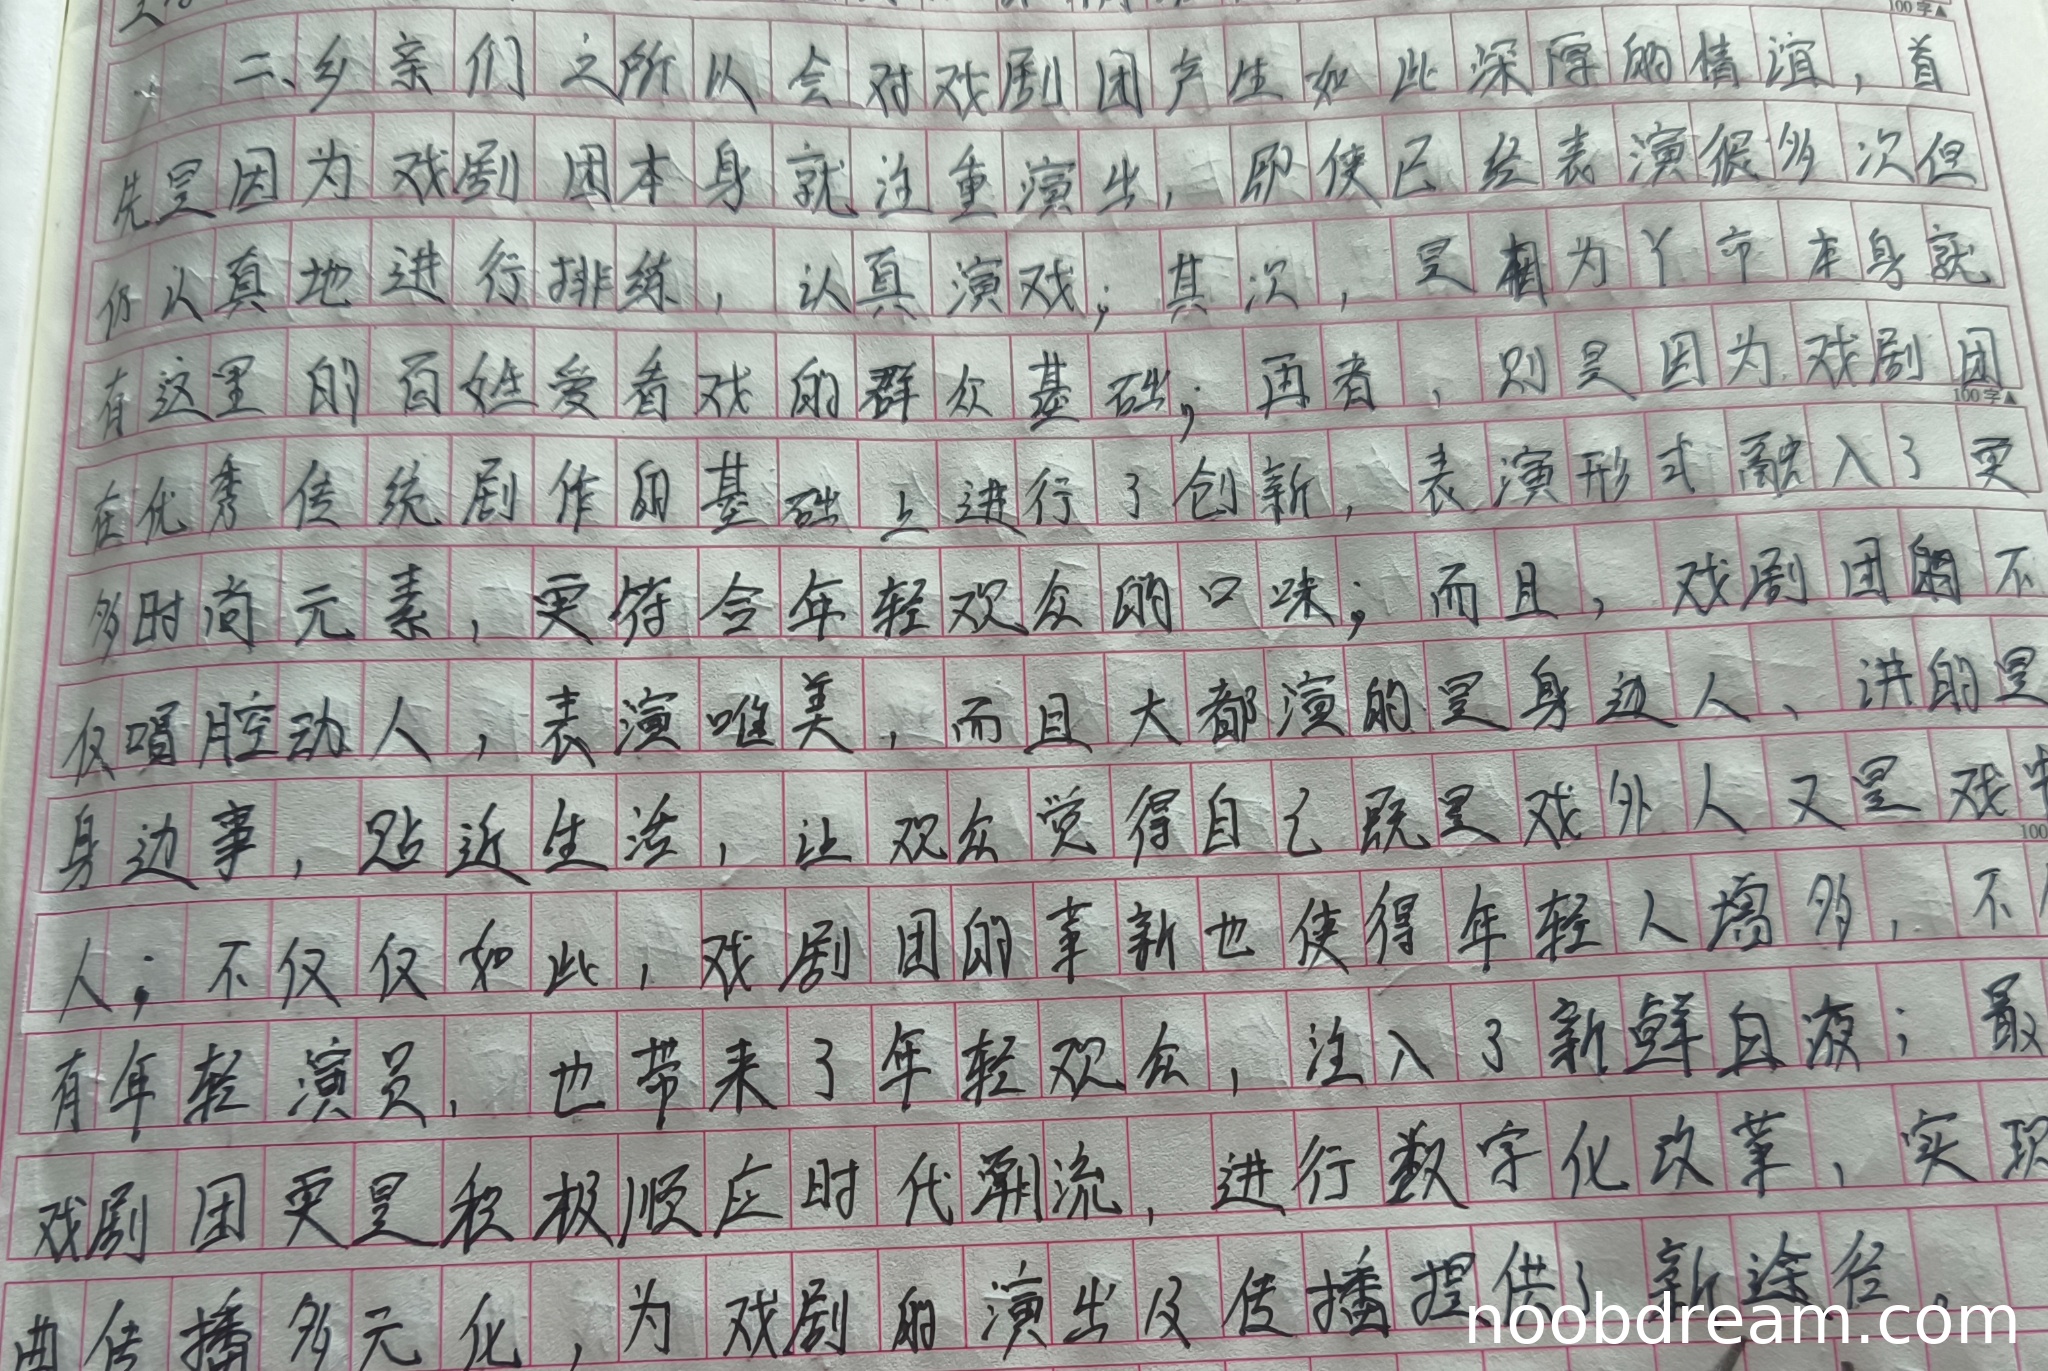 100字▲
二、乡亲们之所以会对戏剧团产生如此深厚的情谊，首
先是因为戏剧团本身就注重演出，即使已经表演很多次但
仍认真地进行排练，认真演戏；其次，是因为丫市本身就
有这里的百姓爱看戏的群众基础；再者，则是因为戏剧团
100字▲
在优秀传统剧作的基础上进行了创新，表演形式融入了更
多时尚元素，更符合年轻观众的口味；而且，戏剧团的不
仅唱腔动人，表演唯美，而且大都演的是身边人、讲的是
身边事，贴近生活，让观众觉得自己既是戏外人又是戏中
100
人；不仅仅如此，戏剧团的革新也使得年轻人增多，不
有年轻演员，也带来了年轻观众，注入了新鲜血液；最
戏剧团更是积极顺应时代潮流，进行数字化改革，实现
曲传播多元化，为戏剧的演出及传播提供了新途径。
noobdream.com